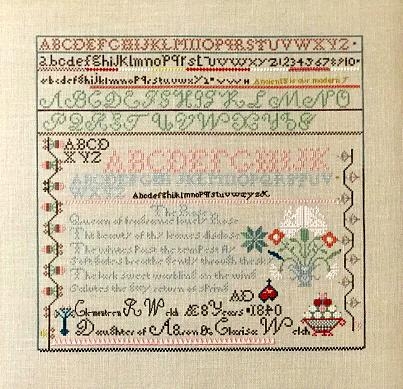 ABCDEFGHIJKLMNOPQRSTUVWXYZ
abcdefghijklmnopqrstuvwxyz 1234567891O
abcdefghijklmnopqrstuvwxyz Ancient is our modern
ABCDEFGHIJKLMNO
PQRSTUVWXYZ
ABCD
XYZ
ABCDEFGHIJK
ABCDEFGHIJKLMNOPQRSTUV
WXYZ
Abcdefghijklmnopqrstuvwxyz&
The Rose
Queen of fragrance lovely Rose
The beauty of thy leaves disclose
The winters past the tempest fly
Soft gales breathe gently through the sky
The lark sweet warbling on the wing
Salutes the gay return of Spring
AD
Clementeen R Welch Æ 8 Years 1840
Daughter of Aaron & Clarisa Welch